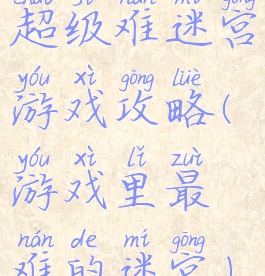 chāo jí nán mí gōng
超级难迷宫
yóu xì gōng lüè
游戏攻略(
yóu xì lǐ zuì
游戏里最
nán de mí gōng
难的迷宫)